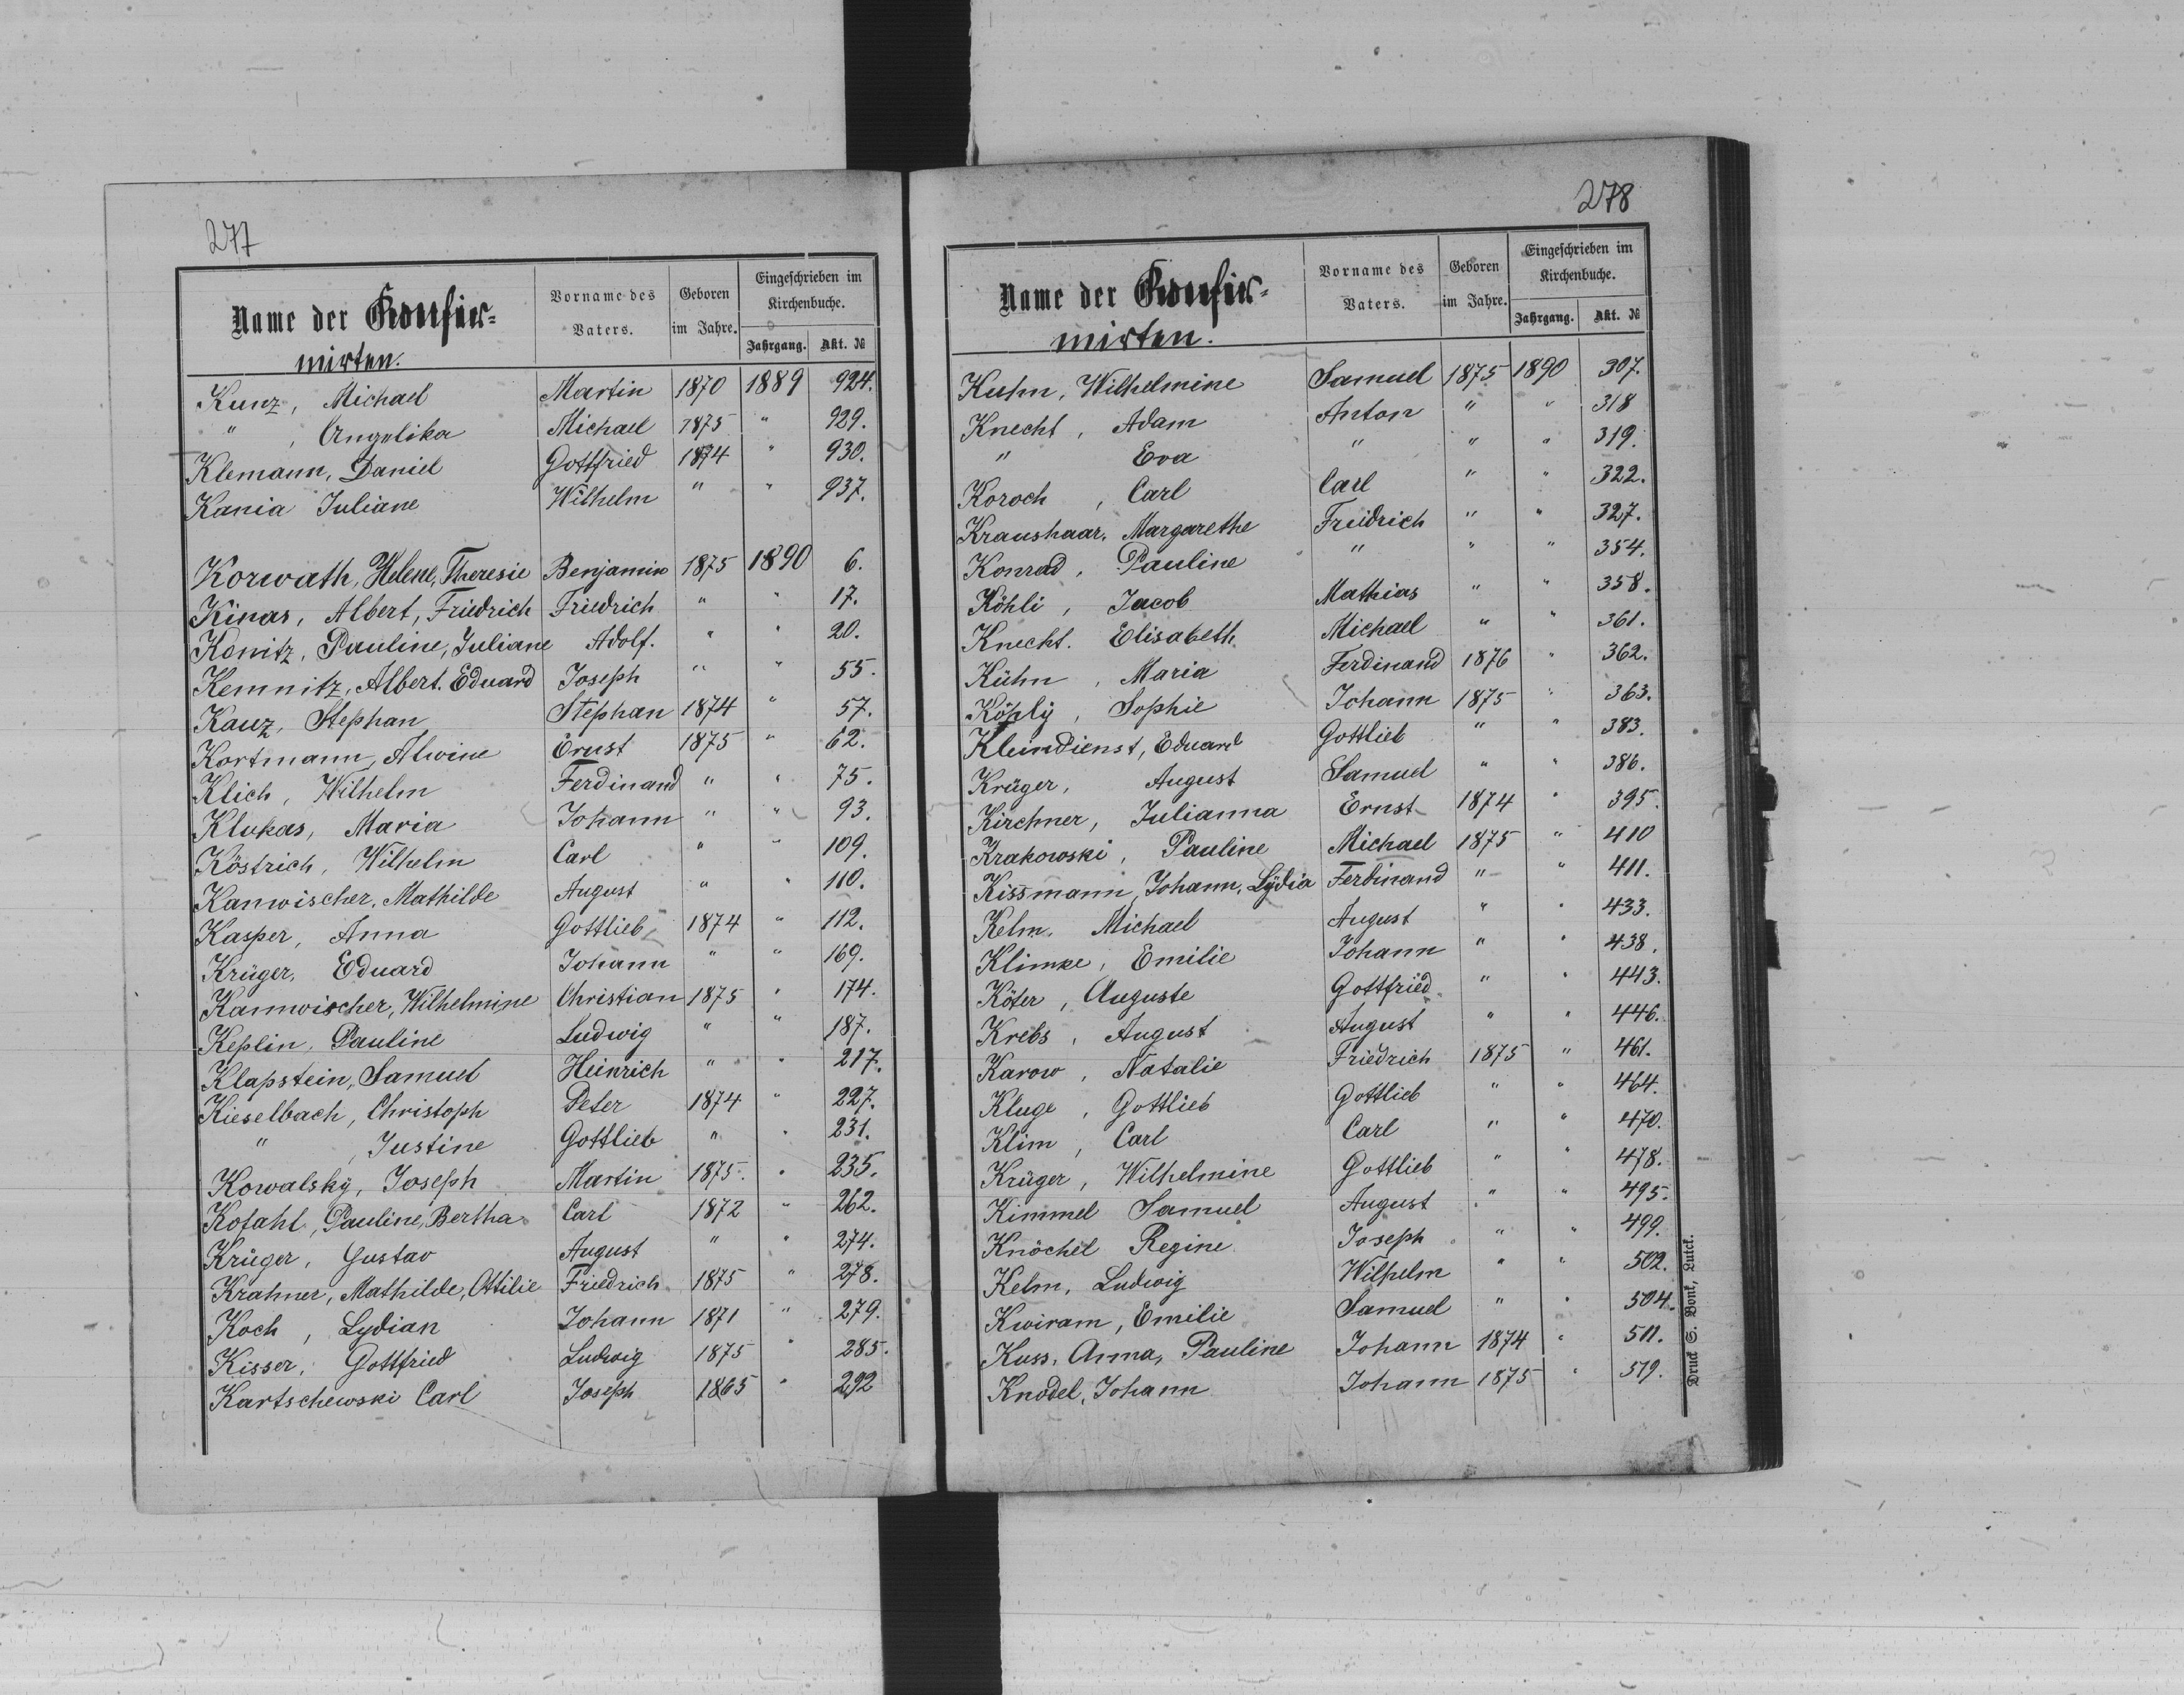 277
Name der Konfir-
mirten.
Vorname des Vaters.
Geboren im Jahre.
Eingeschrieben im Kirchenbuche.
Jahrgang. Akt. №
Kunz, Michael Martin 1870 1889 924.
" , Angelika Michael 1875 " 929.
Klemann, Daniel Gottfried 1874 " 930.
Kania Juliane Wilhelm " " 937.
Korwath, Helene, Theresie Benjamin 1875 1890 6.
Kinas, Albert, Friedrich Friedrich " " 17.
Konitz, Pauline, Juliane Adolf. " " 20.
Kemnitz, Albert. Eduard Joseph " " 55.
Kauz, Stephan Stephan 1874 " 57.
Kortmann, Alwine Ernst 1875 " 62.
Klich, Wilhelm Ferdinand " " 75.
Klukas, Maria Johann " " 93.
Köstrich, Wilhelm Carl " " 109.
Kanwischer, Mathilde August " " 110.
Kasper, Anna Gottlieb 1874 " 112.
Krüger, Eduard Johann " " 169.
Kanwischer, Wilhelmine Christian 1875 " 174.
Keplin, Pauline Ludwig " " 187.
Klapstein, Samuel Heinrich " " 217.
Kieselbach, Christoph Peter 1874 " 227.
" , Justine Gottlieb " " 231.
Kowalsky, Joseph Martin 1875. " 235.
Kotahl, Pauline, Bertha Carl 1872 " 262.
Krüger, Gustav August " " 274.
Krahner, Mathilde, Ottilie Friedrich 1875 " 278.
Koch, Lydian Johann 1871 " 279.
Kisser, Gottfried Ludwig 1875 " 285.
Kartschewski Carl Joseph 1865 " 292
278
Name der Konfir-
mirten.
Vorname des Vaters.
Geboren im Jahre.
Eingeschrieben im Kirchenbuche.
Jahrgang. Akt. №
Kuhn, Wilhelmine Samuel 1875 1890 307.
Knecht, Adam Anton " " 318
" Eva " " " 319.
Koroch, Carl Carl " " 322.
Kraushaar, Margarethe Friedrich " " 327.
Konrad, Pauline " " " 354.
Köhli, Jacob Mathias " " 358.
Knecht. Elisabeth. Michael " " 361.
Kühn, Maria Ferdinand 1876 " 362.
Köhly, Sophie Johann 1875 " 363.
Kleindienst, Eduard Gottlieb " " 383.
Krüger, August Samuel " " 386.
Kirchner, Julianna Ernst 1874 " 395.
Krakowski, Pauline Michael 1875 " 410
Kissmann, Johann, Lydia Ferdinand " " 411.
Kelm, Michael August " " 433.
Klimke, Emilie Johann " " 438.
Köter, Auguste Gottfried " " 443.
Krebs, August August " " 446.
Karow, Natalie Friedrich 1875 " 461.
Kluge, Gottlieb Gottlieb " " 464.
Klim, Carl Carl " " 470.
Krüger, Wilhelmine Gottlieb " " 478.
Kimmel Samuel August " " 495.
Knöchel Regine Joseph " " 499.
Kelm, Ludwig Wilhelm " " 502.
Kwiram, Emilie Samuel " " 504.
Kuss, Anna, Pauline Johann 1874 " 511.
Knodel, Johann Johann 1875 " 519.
Druck S. Bonk, Lutck.